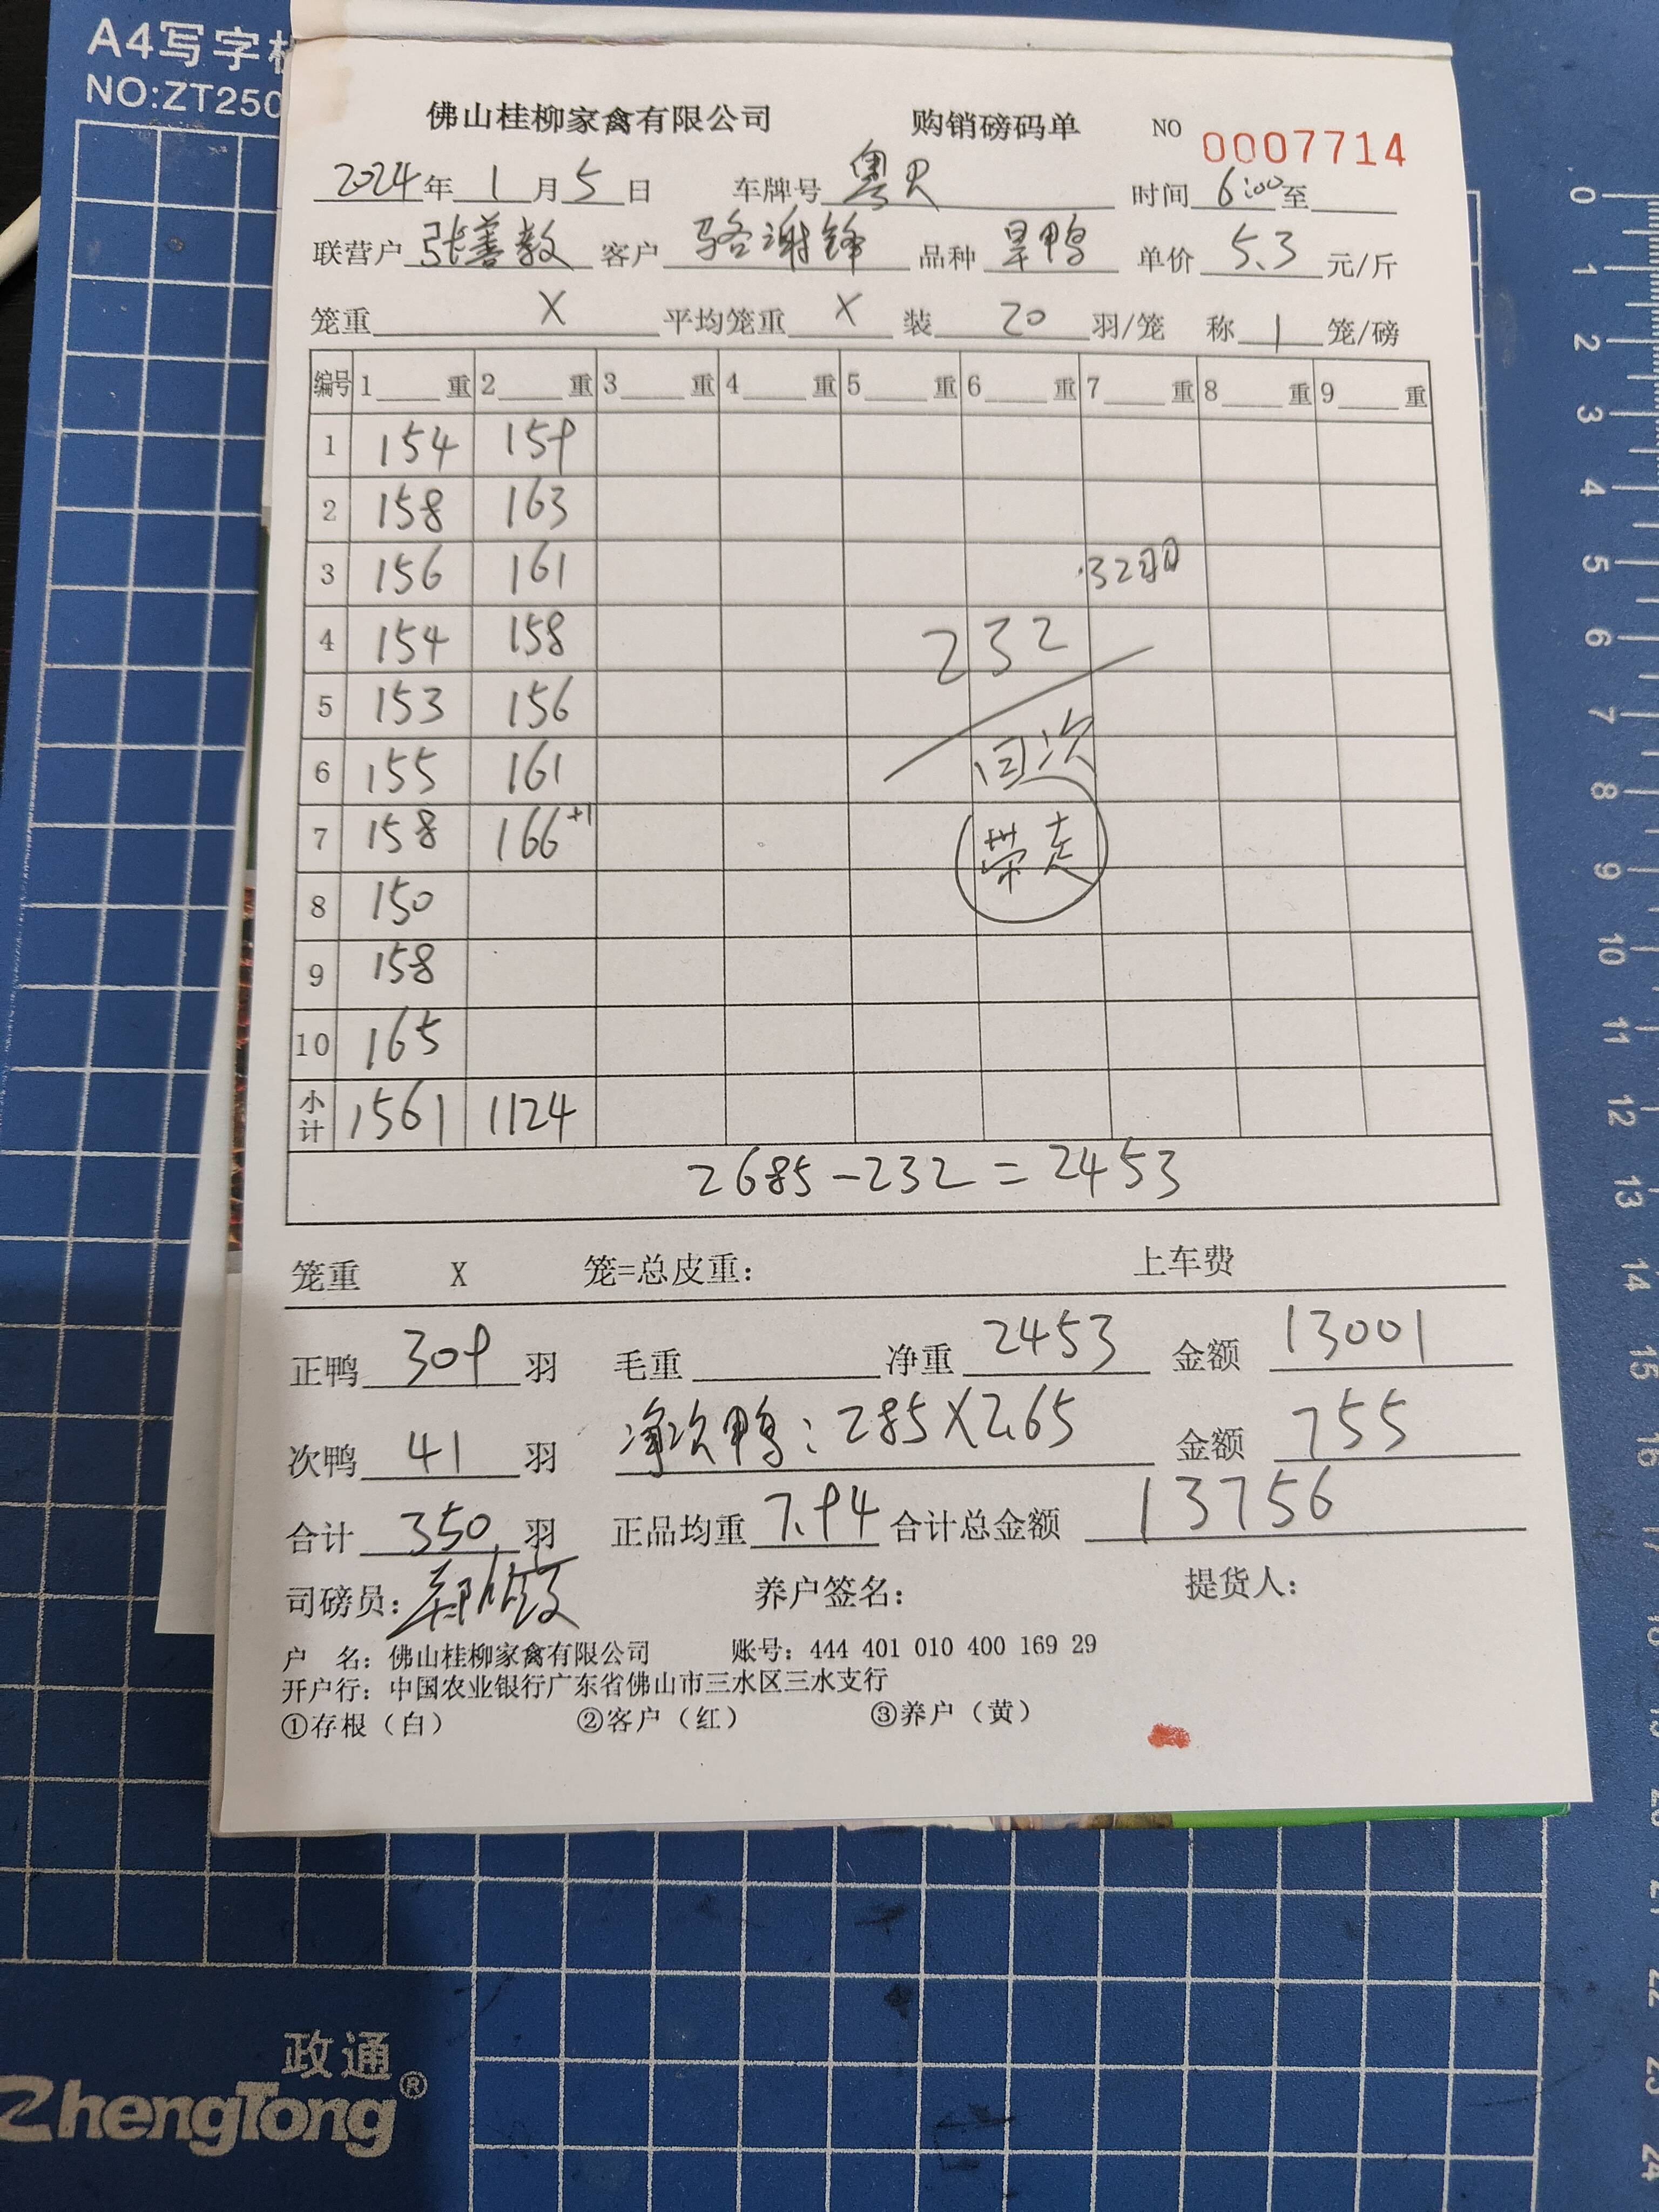 A4写字
NO:ZT250
佛山桂柳家禽有限公司 购销磅码单 NO 0007714
2024年1月5日 车牌号 粤 时间 6:00 至
联营户 张善教 客户 骆谢锋 品种 旱鸭 单价 5.3 元/斤
笼重 X 平均笼重 X 装 20 羽/笼 称 1 笼/磅
编号 1 重 2 重 3 重 4 重 5 重 6 重 7 重 8 重 9 重
1 154 159
2 158 163
3 156 161 32羽
4 154 158 232
5 153 156
6 155 161 回次
7 158 166+1 带走
8 150
9 158
10 165
小计 1561 1124
2685-232=2453
笼重 X 笼=总皮重: 上车费
正鸭 309 羽 毛重 净重 2453 金额 13001
次鸭 41 羽 净次鸭:285X2.65 金额 755
合计 350 羽 正品均重 7.94 合计总金额 13756
司磅员: 养户签名: 提货人:
户 名: 佛山桂柳家禽有限公司 账号: 444 401 010 400 169 29
开户行: 中国农业银行广东省佛山市三水区三水支行
①存根（白） ②客户（红） ③养户（黄）
政通
ZhengTong®
0
1
2
3
4
5
6
7
8
9
10
11
12
13
14
15
16
17
18
19
20
21
22
23
24